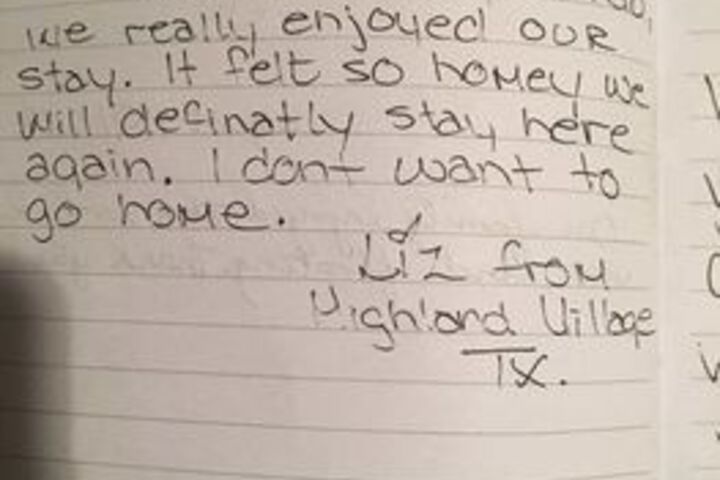 we really enjoyed our
stay. It felt so homey we
will definatly stay here
again. I dont want to
go home.
Liz from
Highland Village
TX.